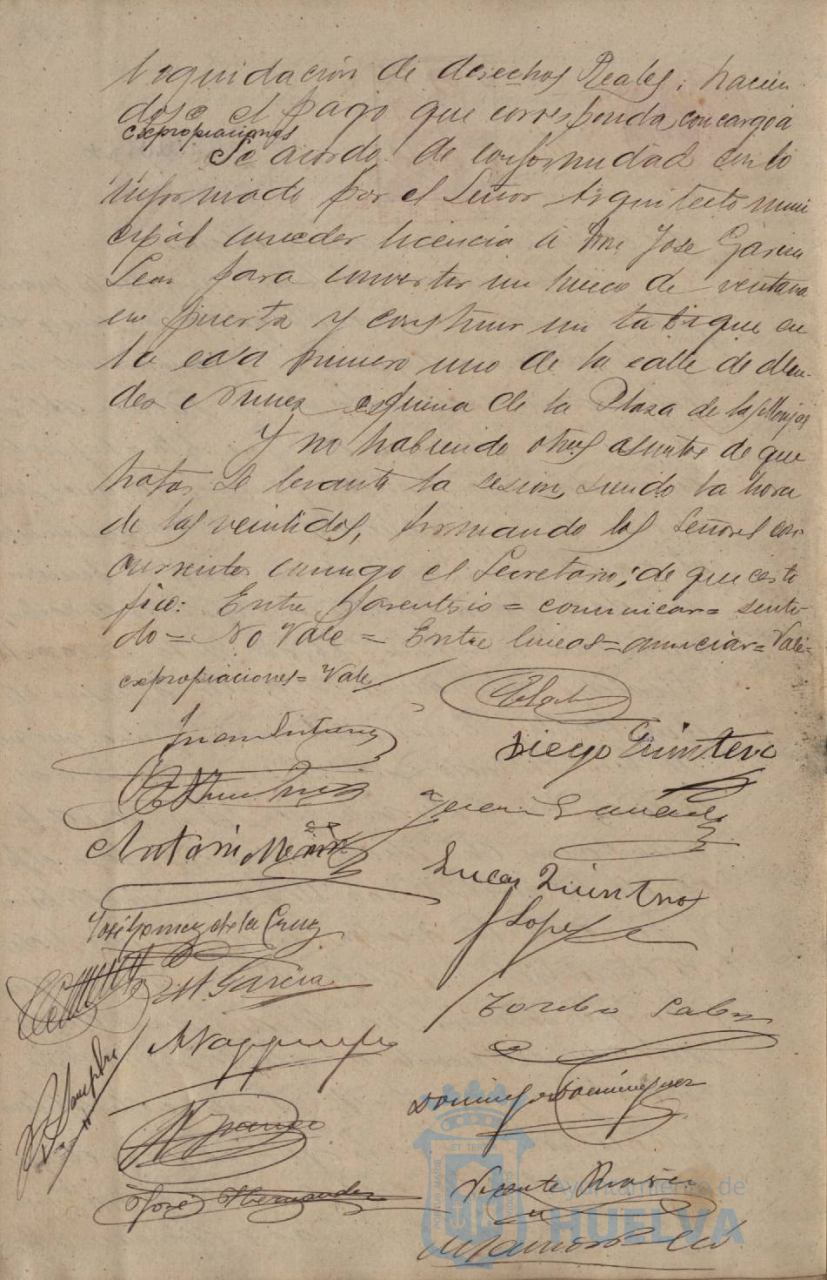 liquidación de derechos Reales; hacien
dose el pago que corresponda, con cargo a
expropiaciones
Se acordó de conformidad con lo
informado por el Señor Arquitecto muni
cipal conceder licencia a Don Jose Garcia
Leon para convertir un hueco de ventana
en puerta y construir un tabique en
la casa primero uno de la calle de Men-
dez Nunez esquina de la Plaza de las Monjas
Y no habiendo otros asuntos de que
tratar, se levantó la sesion, siendo la hora
de las veintidos, firmando los Señores con
currentes conmigo el Secretario; de que certi
fico: Entre parentesis = comunicar = senti
do = No Vale = Entre lineas = anunciar = Vale =
expropiaciones = Vale
Diego Quintero
Antonio
Lucas Quintero
José Gomez de la Cruz
J Lopez
M. Garcia
Toribio
Domingo Dominguez
José Hernandez
Vicente
Ayuntamiento de
HUELVA